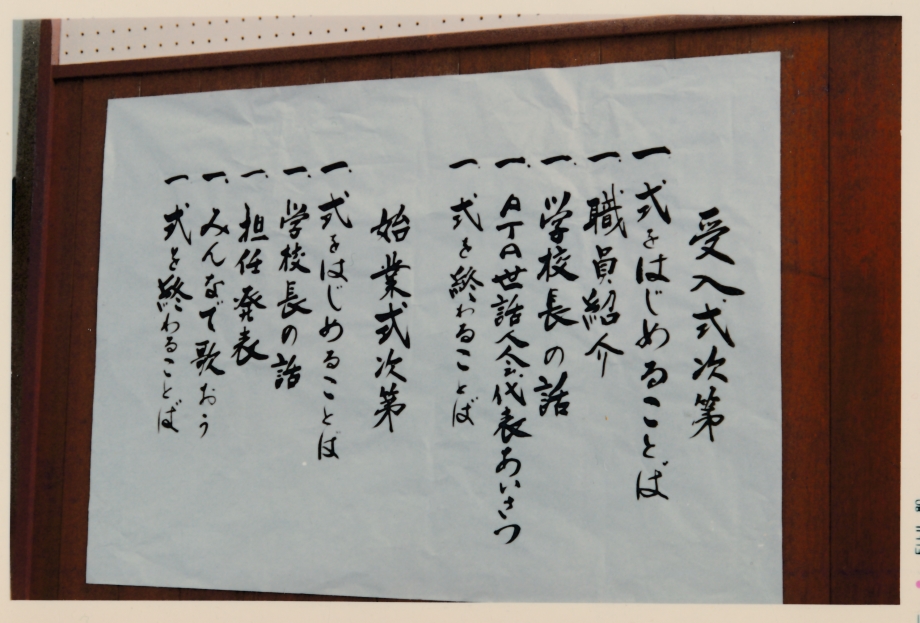 受入式次第
一、式をはじめることば
一、職員紹介
一、学校長の話
一、ATA世話人会代表あいさつ
一、式を終わることば
始業式次第
一、式をはじめることば
一、学校長の話
一、担任発表
一、みんなで歌おう
一、式を終わることば